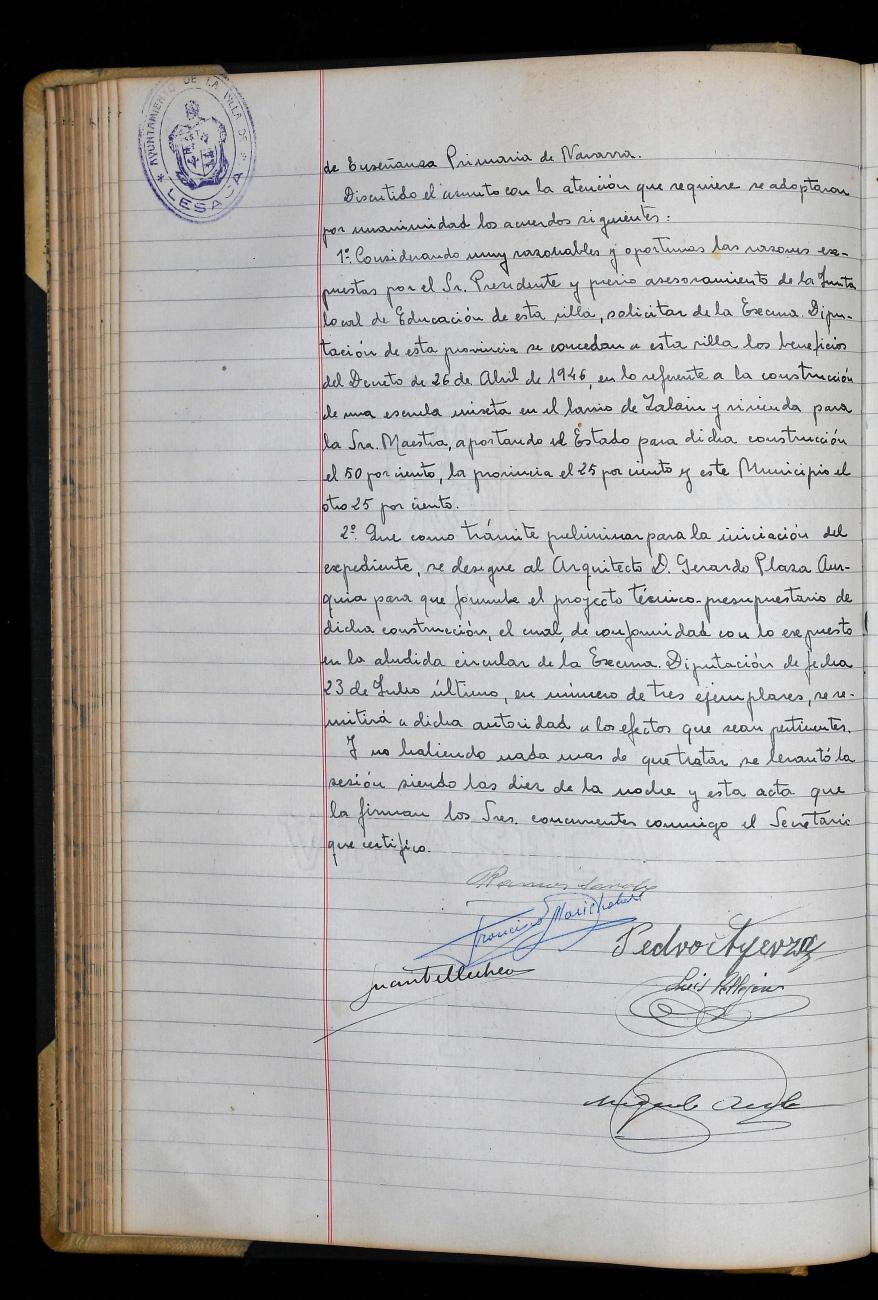 AYUNTAMIENTO DE LA VILLA DE
LESACA
de Enseñanza Primaria de Navarra.
Discutido el asunto con la atención que requiere se adoptaron
por unanimidad los acuerdos siguientes:
1º. Considerando muy razonables y oportunas las razones ex-
puestas por el Sr. Presidente y previo asesoramiento de la Junta
local de Educación de esta villa, solicitar de la Excma. Dipu-
tación de esta provincia se concedan a esta villa los beneficios
del Decreto de 26 de Abril de 1946, en lo referente a la construcción
de una escuela mixta en el barrio de Zalain y vivienda para
la Sra. Maestra, aportando el Estado para dicha construcción
el 50 por ciento, la provincia el 25 por ciento y este Municipio el
otro 25 por ciento.
2º. Que como trámite preliminar para la iniciación del
expediente, se designe al Arquitecto D. Gerardo Plaza Aur-
quia para que formule el projecto técnico-presupuestario de
dicha construcción, el cual, de conformidad con lo expuesto
en la aludida circular de la Excma. Diputación de fecha
23 de Julio último, en número de tres ejemplares, se re-
mitirá a dicha autoridad a los efectos que sean pertinentes.
Y no habiendo nada mas de que tratar se levantó la
sesión siendo las diez de la noche y esta acta que
la firman los Sres. concurrentes conmigo el Secretario
que certifico.
Francisco Marichalar
Pedro Ayerza
Juan Tellechea
Luis
Miguel